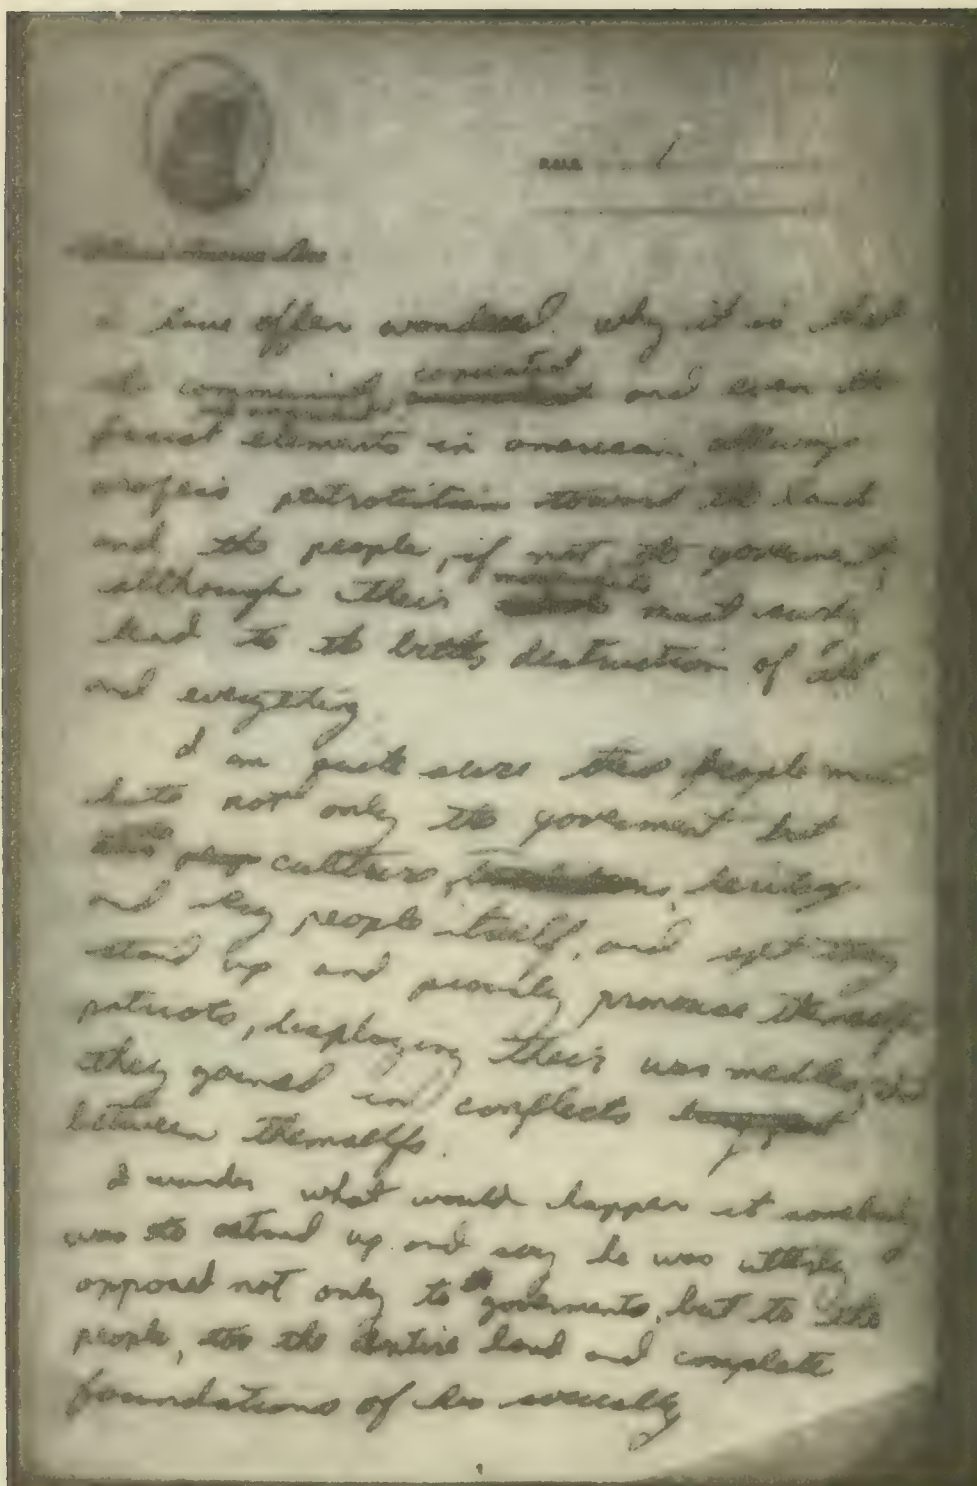 I have often wondered why it is that
the communist, capitalist and even the
fascist elements in american, allways
profess patrotistism toward the land
and the people, if not the goverment;
although their movements must surly
lead to the bitter destruction of all
and everything.
I am quite sure these people must
hate not only the goverment but
the culture, heritage
and very people itself, and yet they
stand up and piously pronouce themselfs
patriots, displaying their war medles, that
they gained in conflicts
between themselfs.
I wonder what would happen it somebody
was to stand up and say he was utterly
opposed not only to the goverments, but to the
people, too the entire land and complete
foundations of his socially